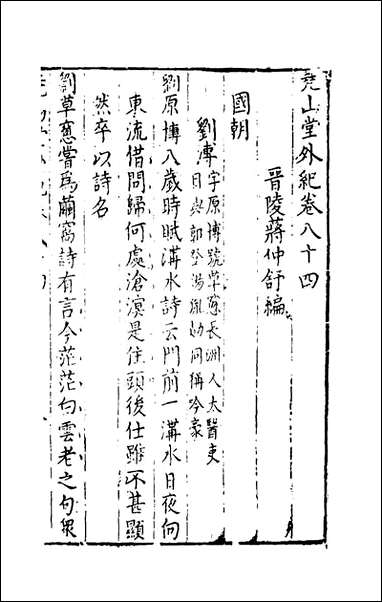 堯山堂外紀卷八十四
晉陵蔣仲舒編
國朝
劉溥
字原博號草窓長洲人太醫吏
目與郭登湯胤勣同稱吟豪
劉原博八歲時賦溝水詩云門前一溝水日夜向
東流借問歸何處滄溟是住頭後仕雖不甚顯
然卒以詩名
劉草窓嘗爲繭窩詩有言今茫茫白雲老之句衆